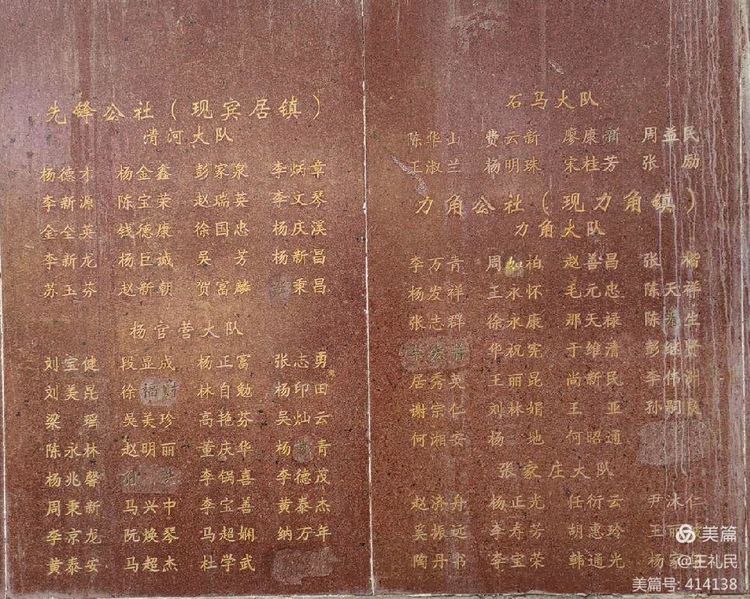 先锋公社（现宾居镇）
清河大队
杨德才 杨金鑫 彭家泉 李炳章
李新源 陈宝荣 赵瑞英 李文琴
金全英 钱德康 徐国忠 杨庆溪
李新龙 杨巨诚 吴芳 杨新昌
苏玉芬 赵新朝 贺富麟 秉昌
杨官营大队
刘宝健 段显成 杨正富 张志勇
刘美昆 徐 林自勉 杨印田
梁瑶 吴美珍 高艳芬 吴灿云
陈永林 赵明丽 董庆华 杨 青
杨兆馨 李锅喜 李德茂
周秉新 马兴中 李宝善 黄泰杰
李京龙 阮焕琴 马超娴 纳万年
黄泰安 马超杰 杜学武
石马大队
陈华山 费云新 廖康 周益民
王淑兰 杨明珠 宋桂芳 张励
力角公社（现力角镇）
力角大队
李万青 周 柏 赵善昌 张
杨发祥 王永怀 毛元忠 陈天祥
张志群 徐永康 那天禄 陈 生
华祝宪 于维清 彭继贤
居秀英 王丽昆 尚新民 李伟
谢宗仁 刘林娟 王亚 孙嗣
何湘安 杨地 何昭通
张家庄大队
赵济舟 杨正光 任衍云 尹沐仁
奚振远 李寿芳 胡惠玲 王丽
陶丹书 李宝荣 韩通光 杨家
美篇
@王礼民
美篇号: 414138